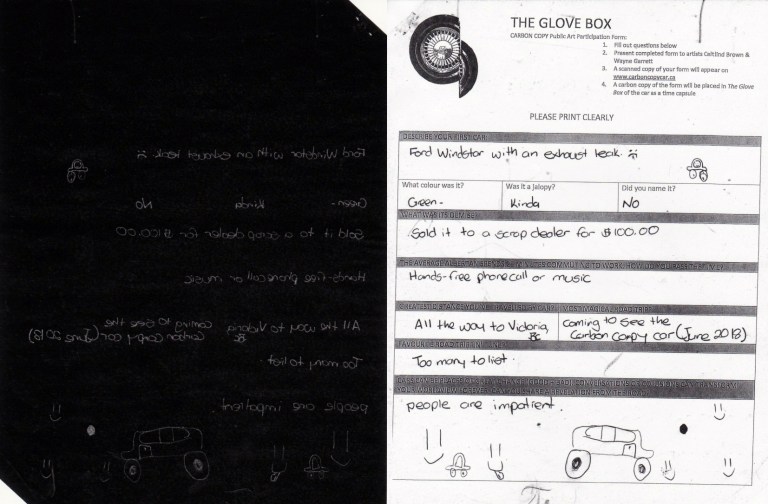 Ford Windstar with an exhaust leak.
Green-
Kinda
No
Sold it to a scrap dealer for $100.00
Hands-free phone call or music
All the way to Victoria
coming to see the
Carbon Copy car (June 2018)
Too many to list.
people are impatient
THE GLOVE BOX
CARBON COPY Public Art Participation Form:
1. Fill out questions below
2. Present completed form to artists Caitlind Brown &
Wayne Garrett
3. A scanned copy of your form will appear on
www.carboncopycar.ca
4. A carbon copy of the form will be placed in The Glove
Box of the car as a time capsule
PLEASE PRINT CLEARLY
DESCRIBE YOUR FIRST CAR:
Ford Windstar with an exhaust leak.
What colour was it?
Green-
Was it a jalopy?
Kinda
Did you name it?
No
WHAT WAS ITS DEMISE?
Sold it to a scrap dealer for $100.00
Hands-free phone call or music
All the way to Victoria
coming to see the
Carbon copy car (June 2018)
Too many to list.
people are impatient.